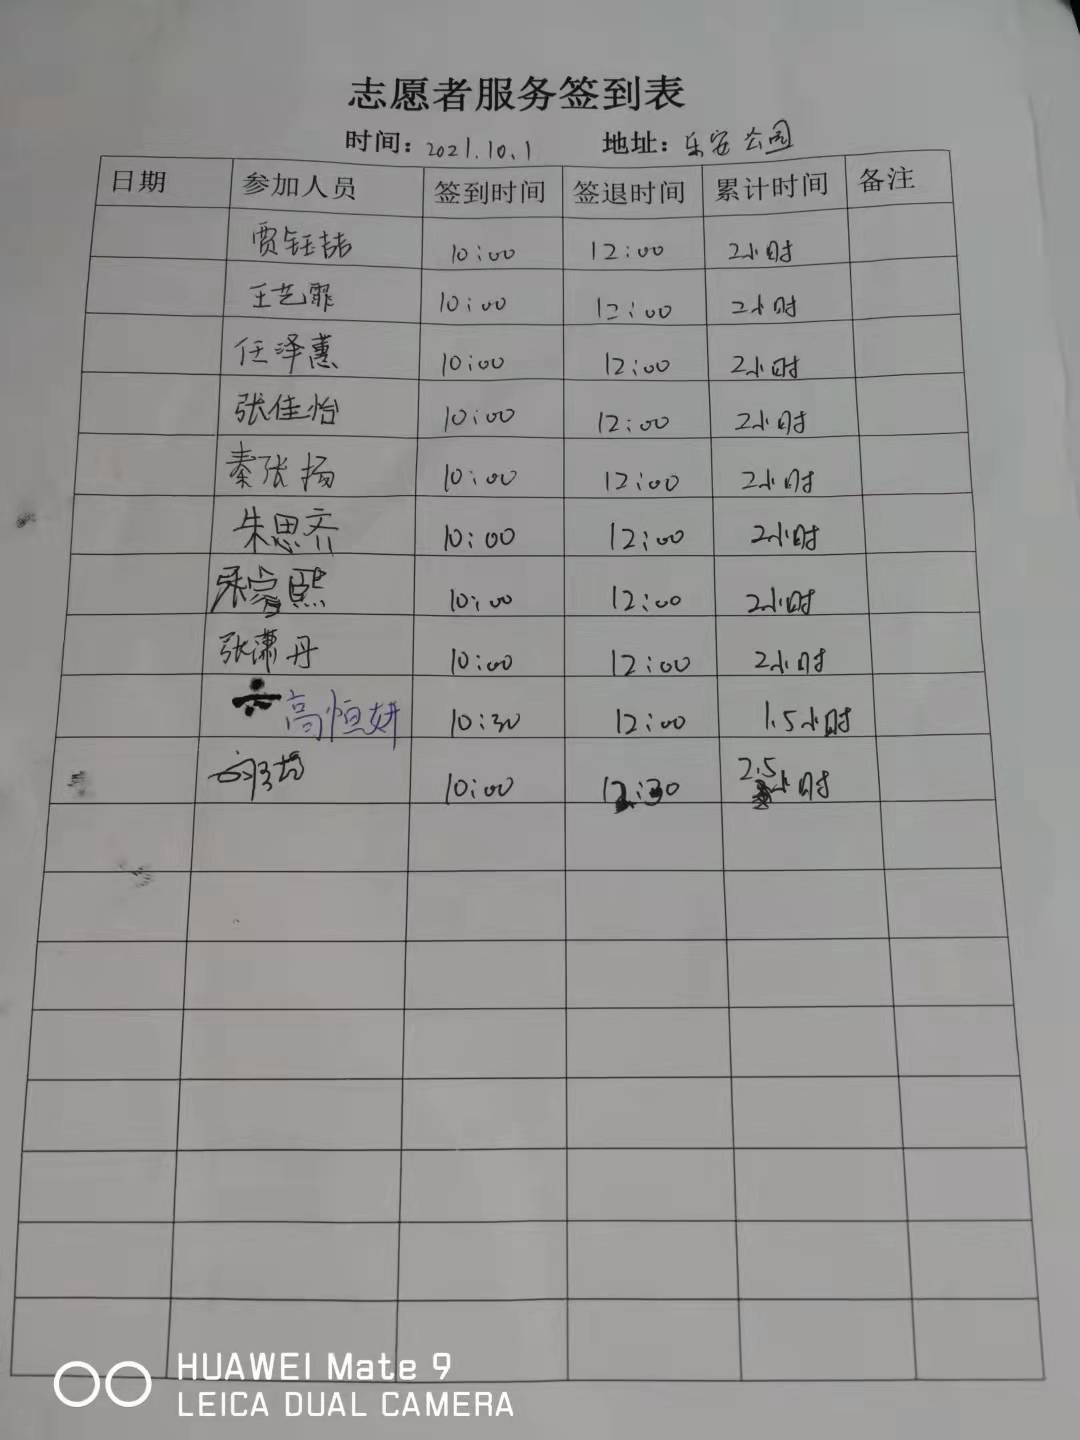 志愿者服务签到表
时间：2021.10.1 地址：乐安公园
日期 参加人员 签到时间 签退时间 累计时间 备注
贾钰喆 10:00 12:00 2小时
王艺霏 10:00 12:00 2小时
任泽蕙 10:00 12:00 2小时
张佳怡 10:00 12:00 2小时
秦张扬 10:00 12:00 2小时
朱思齐 10:00 12:00 2小时
10:00 12:00 2小时
张潇丹 10:00 12:00 2小时
高恒妍 10:30 12:00 1.5小时
10:00 12:30 2.5小时
HUAWEI Mate 9
LEICA DUAL CAMERA